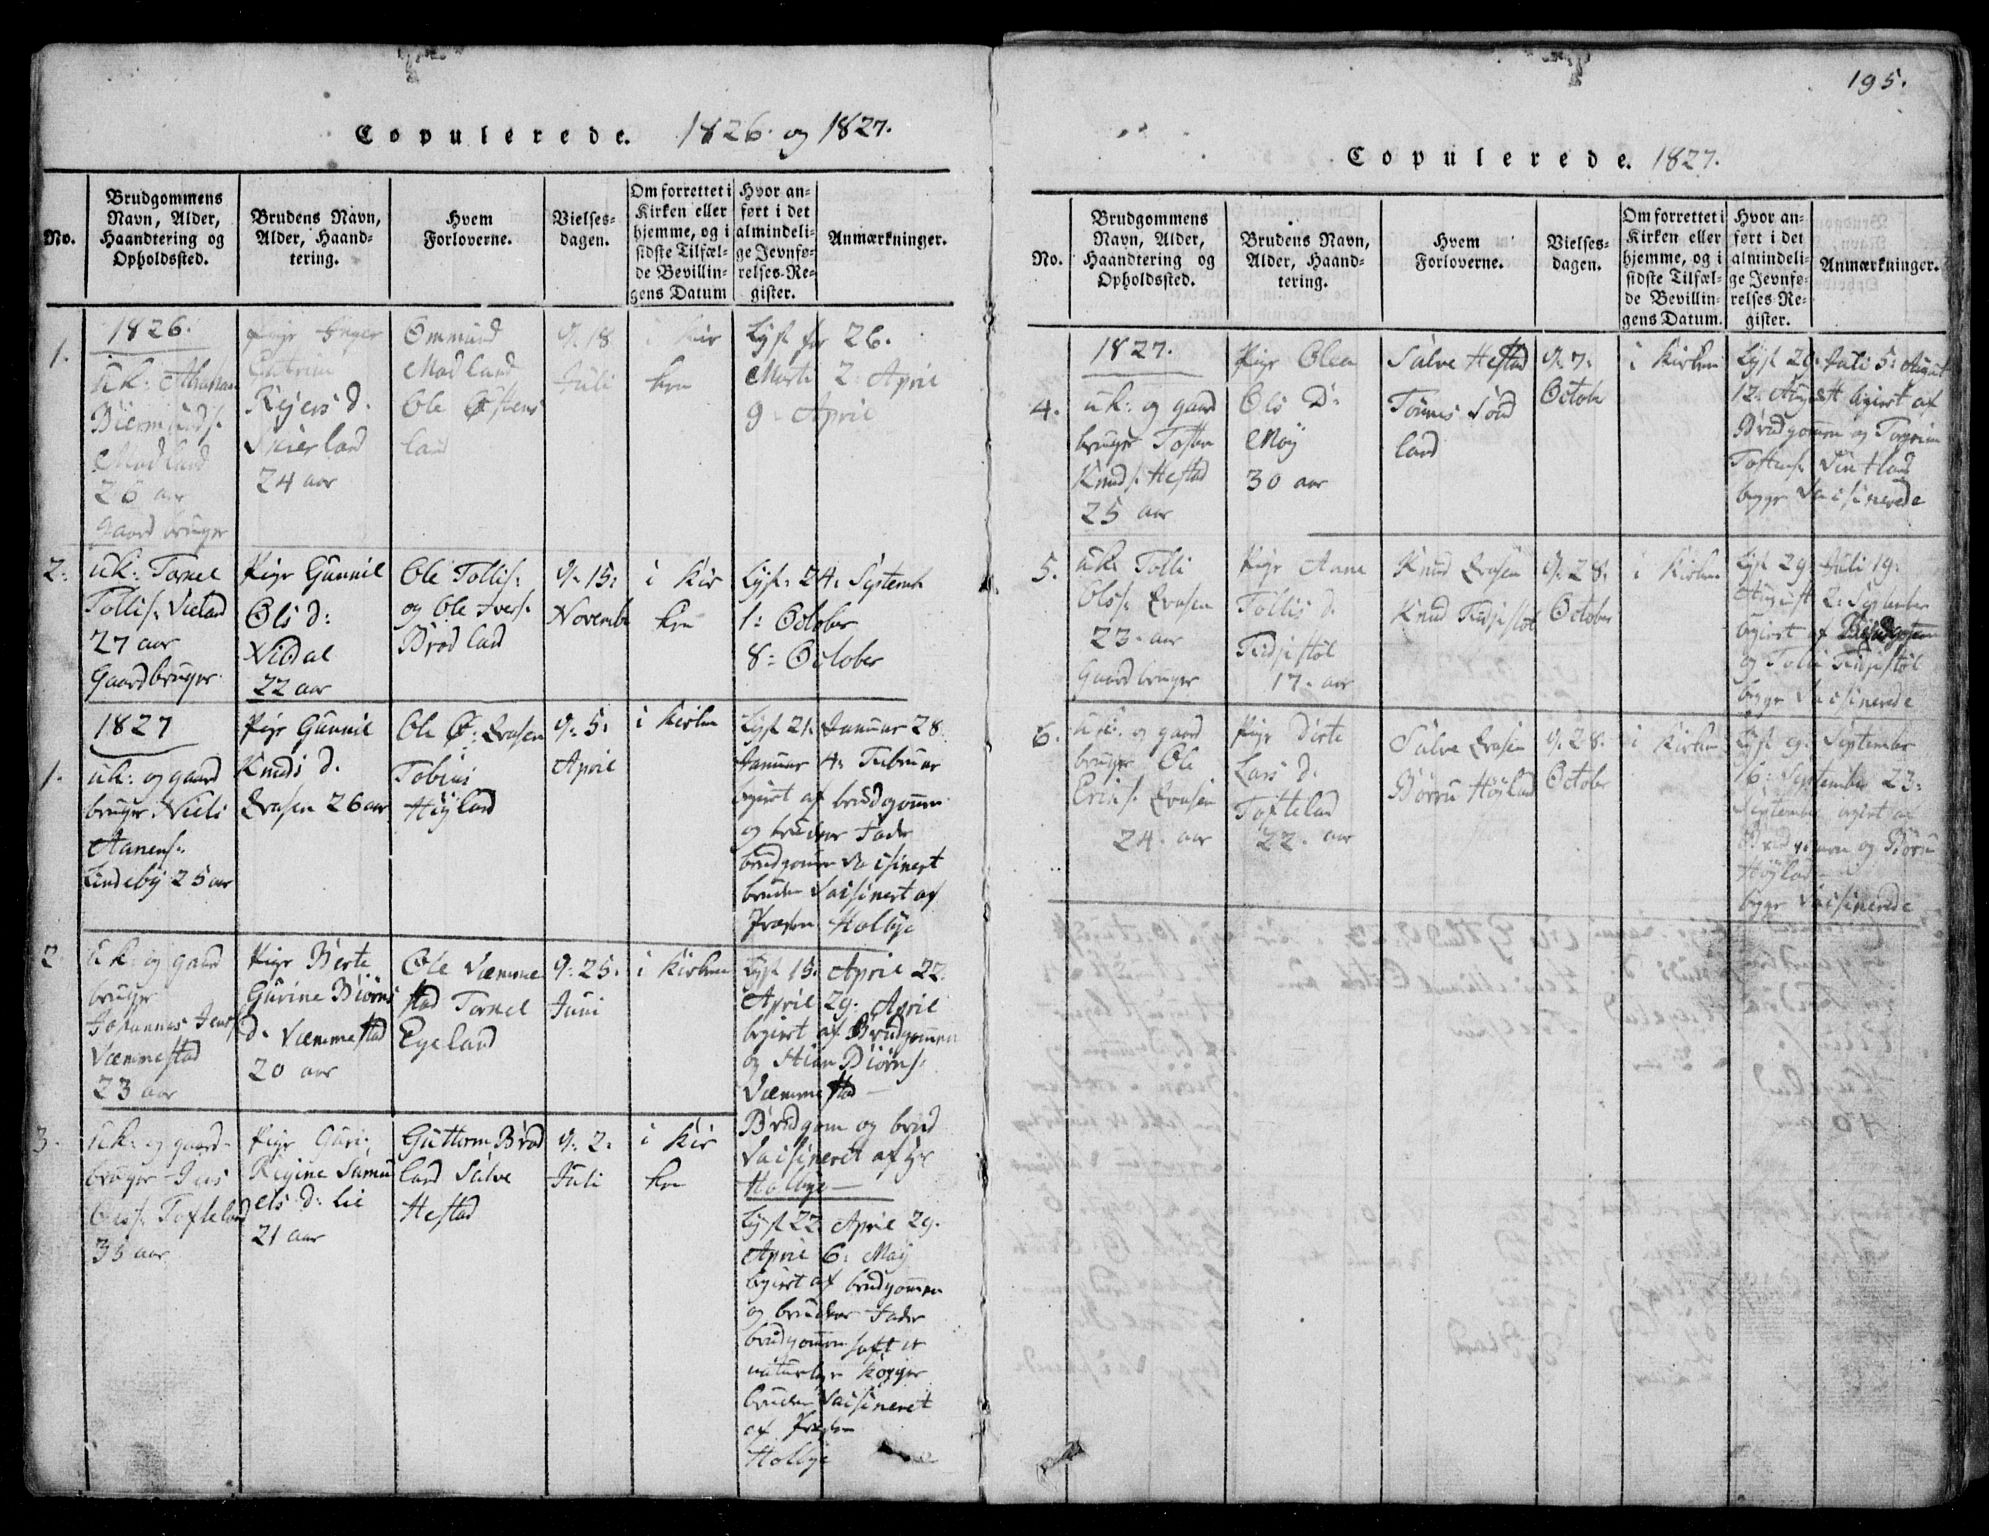 Copulerede. 1826. og 1827.
No.
Brudgommens
Navn, Alder,
Haandtering og
Opholdssted.
Brudens Navn,
Alder, Haand-
tering.
Hvem
Forloverne.
Vielses-
dagen.
Om forrettet i
Kirken eller
hjemme, og i
sidste Tilfæl-
de Bevillin-
gens Datum
Hvor an-
ført i det
almindeli-
ge Jevnfø-
relses-Re-
gister.
Anmærkninger.
1.
1826.
uk:
Madland
26 aar
gaardbruger
Pige Inger
Catrine
Rejers d.
24 aar
Ommund
Madland
Ole
land
d. 18
Juli
i Kir
ken
Lyst for 26.
Marti 2. April
9. April
2.
uk: Torkel
Tollis:
27 aar
Gaardbruger
Pige Gunnil
Ols d:
Nidal
22 aar
Ole Tollis:
og Ole Ivers:
Brødland
d. 15:
Novembr
i Kir
ken
Lyst: 24. Septemb
1: October
8: October
1827
1.
uk: og gaard
bruger Niels
Aanens:
Lindeby 25 aar
Pige Gunnil
Knuds d.
Evasen 26 aar
Ole O: Evasen
Tobias
Høyland
d: 5:
April
i Kirken
Lyst 21. Januar 28
Januar 4. Februar
begiert af brudgommen
og brudens Fader
brudgommen Vaisinert
bruden Vaisinert af
Præsten Holbye
2.
uk: og gaard
bruger
Johannes Jens:
Væmmestad
23 aar
Pige Birte
Gurine Biørns
d. Væmmestad
20 aar
Ole Væmme
stad Torkel
Egeland
d: 25:
Juni
i Kirken
Lyst 15. April 22.
April 29. April
begiert af Brudgommen
og Stian Biørns:
Væmmestad
Brudgom og brud
Vaisineret af Hr
Holbye
3.
uk: og gaard-
bruger
Tofteland
33 aar
Pige Guri
Regine Samu
els d: Lie
21 aar
Guttorm Brød
land Salve
Hestad
d: 2:
Juli
i Kir
ken
Lyst 22 April 29.
April 6: May
begiert af brudgommen
og brudens Fader
brudgommen haft de
naturlige Kopper
bruden Vaisineret
af Præsten
Holbye
195.
Copulerede. 1827.
No.
Brudgommens
Navn, Alder,
Haandtering og
Opholdssted.
Brudens Navn,
Alder, Haand-
tering.
Hvem
Forloverne.
Vielses-
dagen.
Om forrettet i
Kirken eller
hjemme, og i
sidste Tilfæl-
de Bevillin-
gens Datum.
Hvor an-
ført i det
almindeli-
ge Jevnfø-
relses-Re-
gister.
Anmærkninger.
1827.
4.
uk: og gaard
bruger Tosten
Knuds: Hestad
25 aar
Pige Olea
Ols D:
Møy
30 aar
Salve Hestad
Tønnes
land
d. 7:
October
i Kirken
Lyst 29. Juli 5. August
12. August begiert af
Brudgommen og
Tostens:
begge Vaisinerede
5.
uk: Tolli
Ols: Evasen
23. aar
Gaardbruger
Pige Anne
Tollis d.
Tidjestøl
17. aar
Knud Evasen
Knud Tidjestøl
d: 28.
October
i Kirken
Lyst 29. Juli 19.
August 2. September
begiert af Brudgommen
og Tolli Tidjestøl
begge Vaisinerede
6.
uk: og gaard
bruger Ole
Erins: Evasen
24. aar
Pige Dorte
Lars d.
Tofteland
22. aar
Salve Evasen
Børru Høyland
d. 28.
October
i Kirken
Lyst 9. September
16. September 23.
September begiert af
Brudgommen og Børru
Høyland
begge Vaisinerede